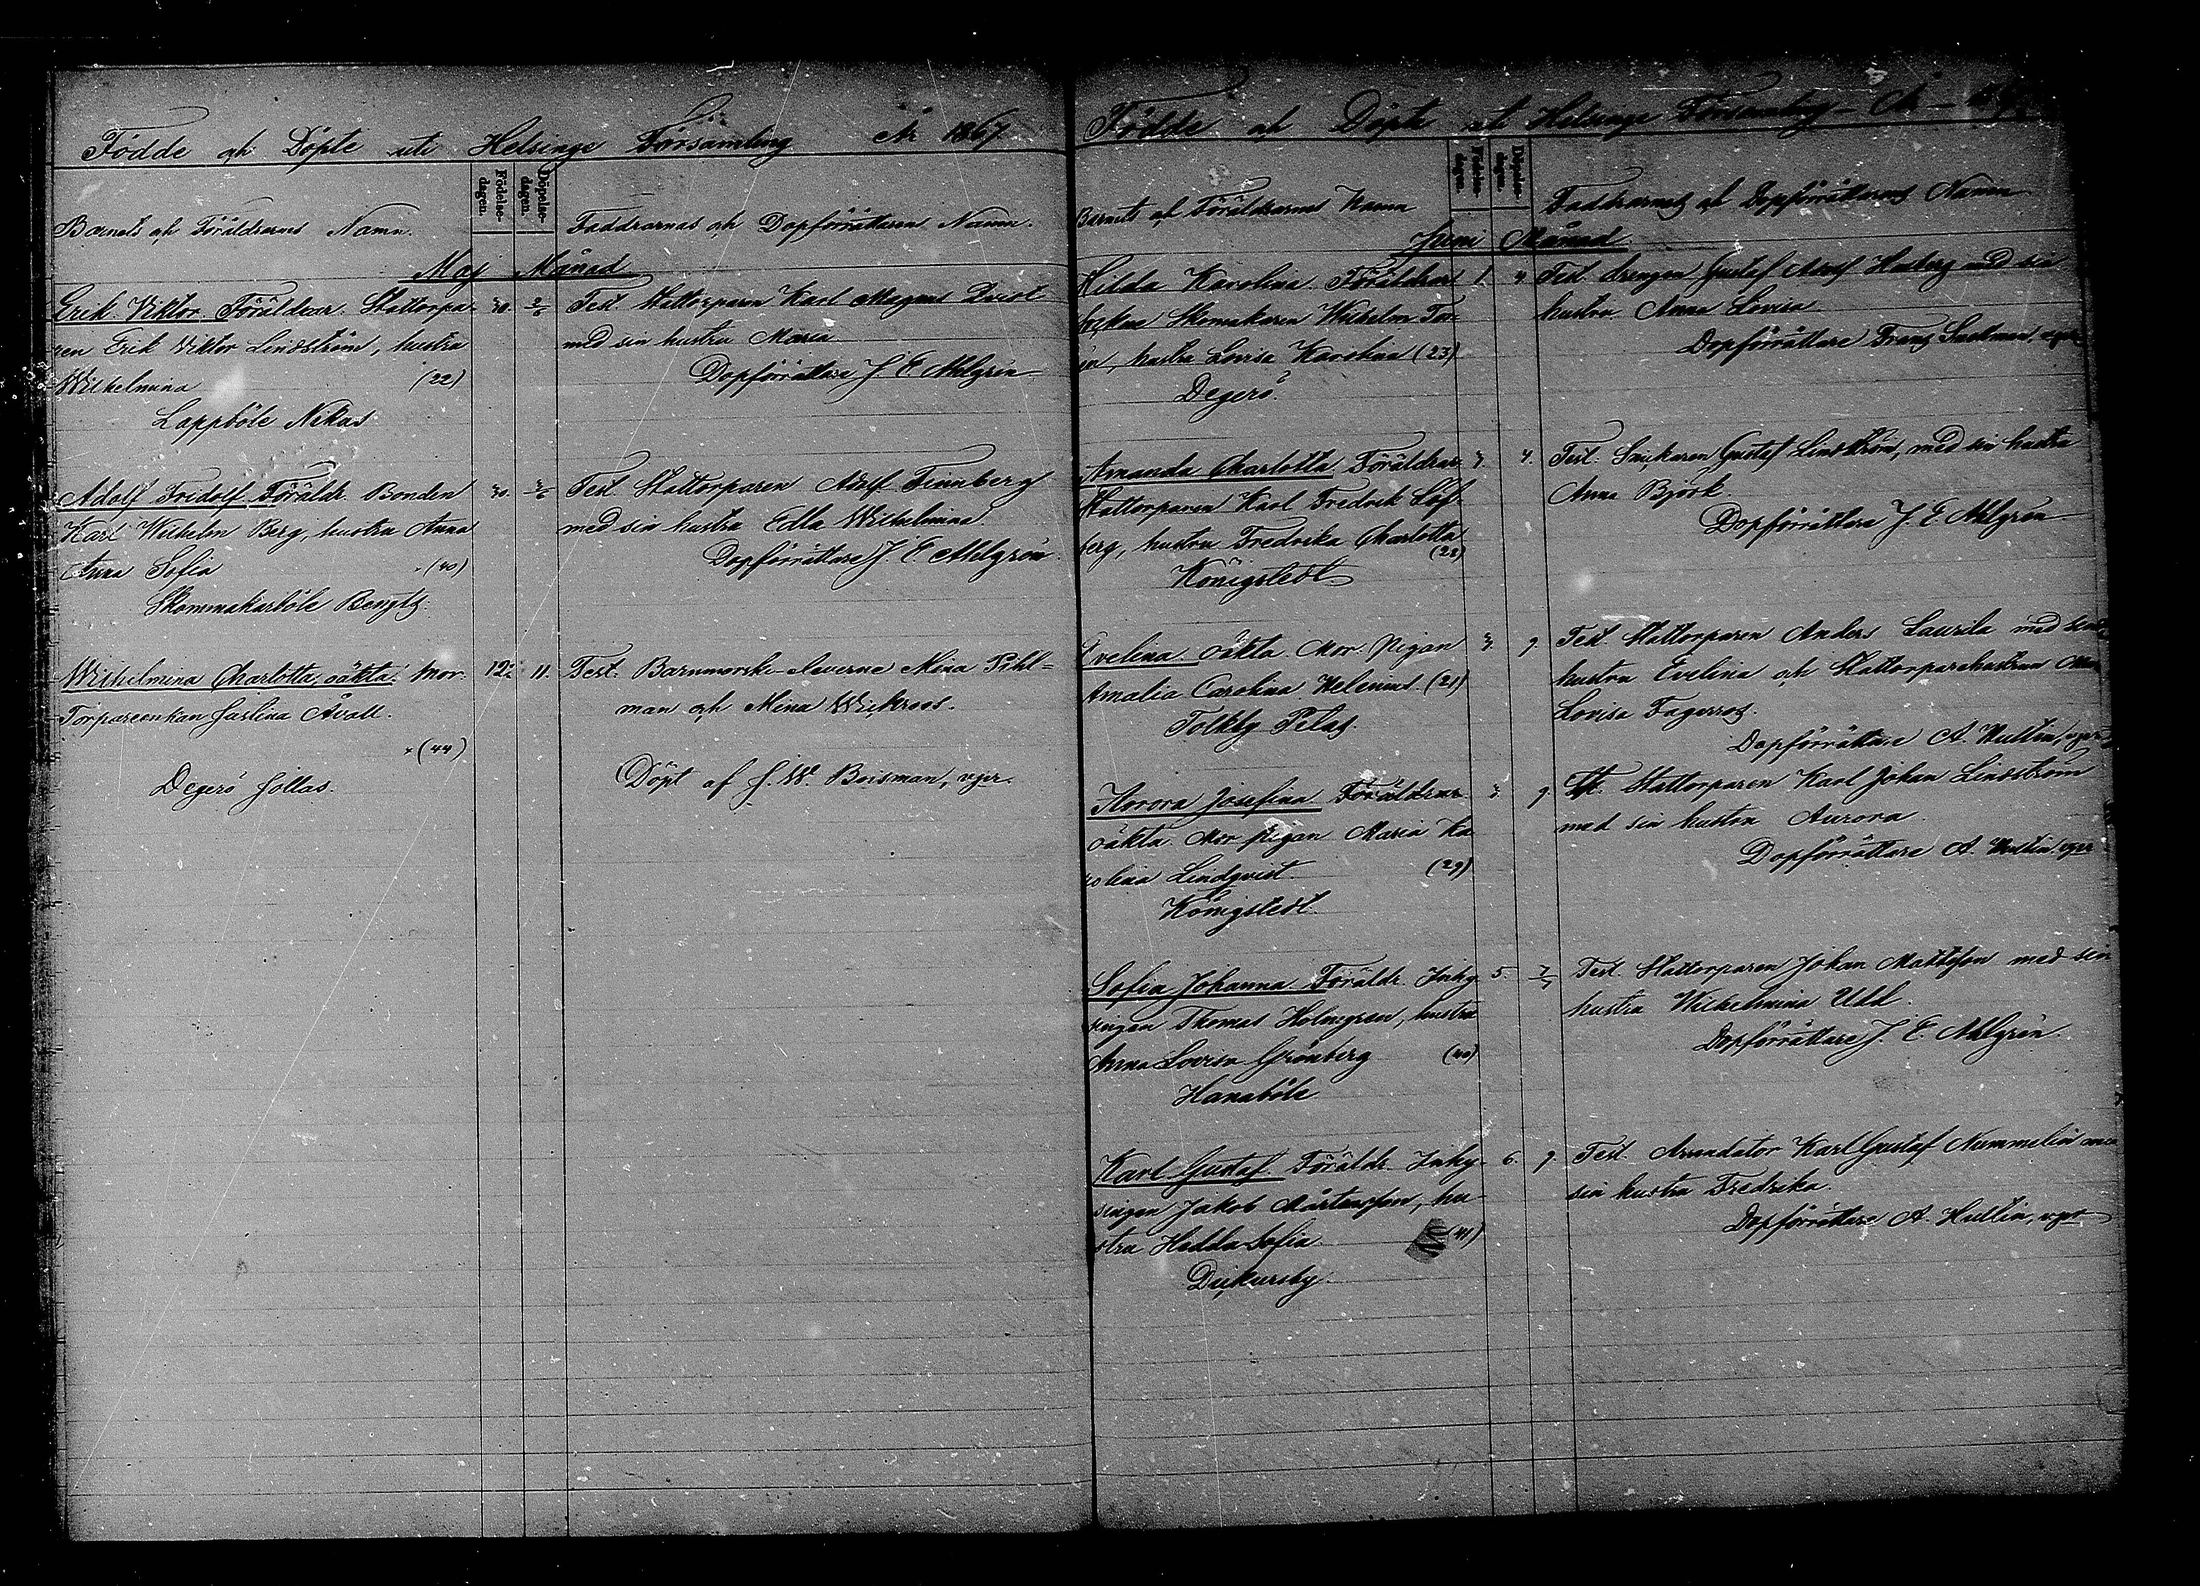 Födde och Döpte uti Helsinge Församling År 1867
Barnets och Föräldrarnes Namn.
Födelse-
dagen.
Döpelse-
dagen.
Faddrarnas och Dopförrättaren Namn.
Maj Månad
Erik Viktor Föräldrar. Stattorpa- 30. 2/6 Test. Stattorparen Karl Magnus Qvist
ren Erik Viktor Lindström, hustru med sin hustru Maria
Wilhelmina (22) Dopförrättare J. E. Ahlgrén
Lappböle Nikus
Adolf Fridolf Föräldr. Bonden 30. 2/6 Test. Stattorparen Adolf Finnberg
Karl Wilhelm Berg, hustru Anna med sin hustru Edla Wilhelmina.
Anna Sofia (40) Dopförrättare J. E. Ahlgrén.
Skommakarböle Bengts.
Wilhelmina Charlotta, oäkta. Mor. 12. 11. Test. Barnmorske-eleverne Mina Pihl=
Torpareenkan Justina Åvall. man och Mina Wickroos.
(44)
Degerö Jollas. Döpt af J. W. Boisman, vpr.
Födde och Döpte uti Helsinge Församling År
Barnets och Föräldrarnes Namn
Födelse-
dagen.
Döpelse-
dagen.
Faddrarnes och Dopförrättarens Namn
Juni Månad
Hilda Karolina Föräldrar 1. 4. Test. drengen Gustaf Adolf med sin
Skomakaren Wilhelm hustru Anna Lovisa.
hustru Lovisa Karolina (23) Dopförrättare Franz
Degerö.
Amanda Charlotta Föräldrar 3. 4. Test. Snickaren Gustaf Lindström, med sin hustru
Stattorparen Karl Fredrik Löf- Anna Björk.
berg, hustru Fredrika Charlotta Dopförrättare J. E. Ahlgrén
(28)
Königstedt
Evelina oäkta. Mor. Pigan 3. 9. Test. Stattorparen Anders Laurila med
Amalia Carolina Helenius. (21) hustru Evelina och Stattorparehustrun
Tolkby Pelas. Lovisa Fageros.
Dopförrättare A. Hultin, vpr
Aurora Josefina Föräldrar 3. 9. Tst. Stattorparen Karl Johan Lindström
oäkta Mor pigan Maria Ka- med sin hustru Aurora.
rolina Lindqvist. (29) Dopförrättare A. Hultin vpr
Königstedt.
Sofia Johanna Föräldr. Inhy- 5. 7/7 Test. Stattorparen Johan Mattsson med sin
singen Thomas Holmgren, hustru hustru Wilhelmina Udd.
Anna Lovisa Grönberg (40) Dopförrättare J. E. Ahlgrén.
Hanaböle
Karl Gustaf Föräldr. Inhy- 6. 9. Test. Arrendator Karl Gustaf Nummelin med
singen Jakob Mårtensson, hu- sin hustru Fredrika.
stru Hedda Sofia (41) Dopförrättare A. Hultin, vpr
Dickursby.